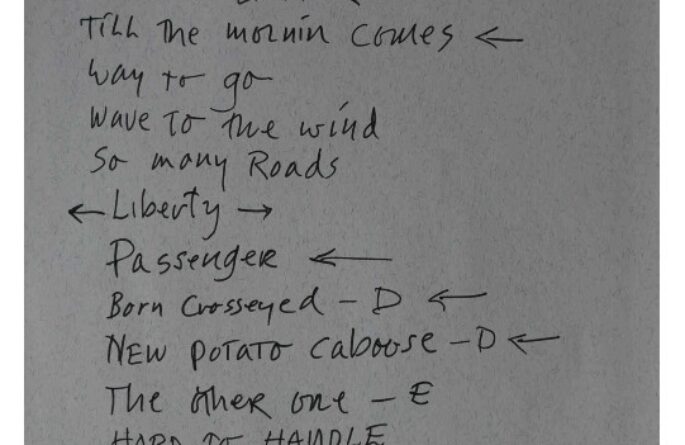 Till The mornin comes ←
Way to go
Wave To The wind
So many Roads
← Liberty →
Passenger ←
Born Crosseyed - D ←
NEW POTATO Caboose - D ←
The other one - E
HARD TO HANDLE